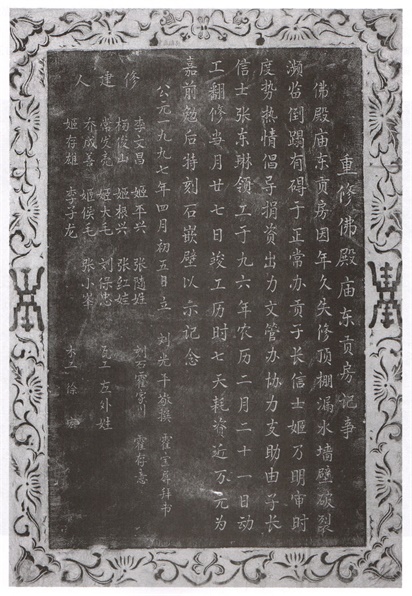 重修佛殿庙东贡房记事
佛殿庙东贡房因年久失修顶棚漏水墙壁破裂
濒临倒蹋有碍于正常办贡子长信士姬万明审时
度势热情倡导捐资出力文管办协力支助由子长
信士张东琳领工于九六年农历二月二十一日动
工翻修当月廿七日竣工历时七天耗资近万元为
嘉前勉后特刻石嵌壁以示记念
公元一九九七年四月初五日立 刘光平敬撰 霍宝屏拜书
修建人
李文昌 姬平兴 张随娃 刻石霍富川 霍存意
杨俊山 姬根兴 张红娃
常发亮 姬大毛 刘保忠 瓦工 左外娃
乔成善 姬侯毛 张小峯
姬存雄 李子龙 木工 徐